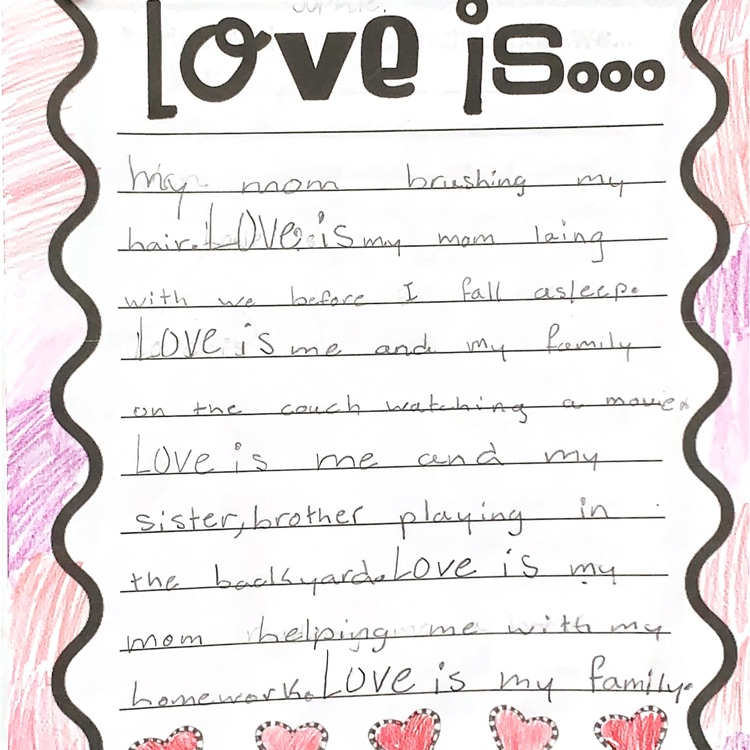 Love is...
my mom brushing my
hair. Love is my mom laing
with we before I fall asleep.
Love is me and my family
on the couch watching a movie.
Love is me and my
sister, brother playing in
the backyard. Love is my
mom helping me with my
homework. Love is my family.